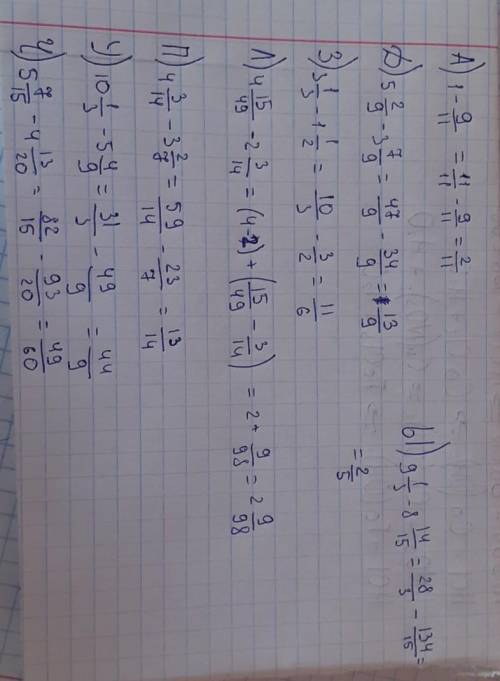 А) 1 - 9/11 = 11/11 - 9/11 = 2/11
Ф) 5 2/9 - 3 7/9 = 47/9 - 34/9 = 13/9
З) 3 1/3 - 1 1/2 = 10/3 - 3/2 = 11/6
Л) 4 15/49 - 2 3/14 = (4-2) + (15/49 - 3/14) = 2 + 9/98 = 2 9/98
П) 4 3/14 - 3 2/7 = 59/14 - 23/7 = 13/14
У) 10 1/3 - 5 4/9 = 31/3 - 49/9 = 44/9
5 7/15 - 4 13/20 = 82/15 - 93/20 = 49/60
Ы) 9 1/3 - 8 14/15 = 28/3 - 134/15 =
= 2/5